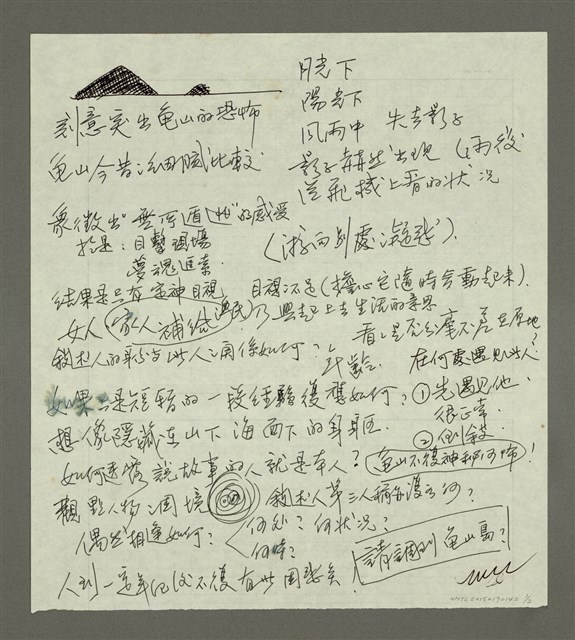 月光下
陽光下
風雨中　失去影子
影子再然出現（雨後
從飛機上看的狀況
刻意突出龜山的恐怖
龜山今昔 細膩比較
象徵出"無所遁逃"的感受
於是：目擊現場
夢魂追索
（游向別處凝聚）.
結果是只有定神目視 目視不足（擔心它隨時會動起來）.
女人（家人補給 漁民）乃興起上去生活的意思
看是否分毫不差在原地
敘述人的職分與此人之關係如何？年齡
在何處遇見此人？
如果只是短暫的一段經驗復應如何？①先遇見他，
很正常.
②倒敘
想像隱藏在山下海面下的身軀.
如何透露說故事的人就是本人？龜山不復神秘可怖！
觀點人物之困境 敘述人第三人稱為渡 何？
偶然相逢如何？
何處？何狀況？
何時？
請調到龜山島？
人到一定年紀後不復有此困惑矣！